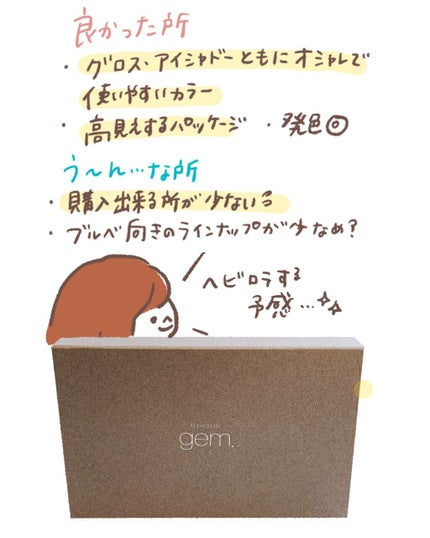 良かった所
・グロス・アイシャドーともにオシャレで
使いやすいカラー
・高見えするパッケージ ・発色◎
う〜ん…な所
・購入出来る所が少ない
・ブルベ向きのラインナップが少なめ?
ヘビロテする
予感…✨
gem.